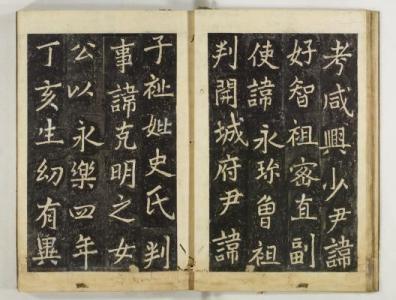 考咸興少尹諱
好智祖密直副
使諱永珎曾祖
判開城府尹諱
子祉妣史氏判
事諱克明之女
公以永樂四年
丁亥生幼有異